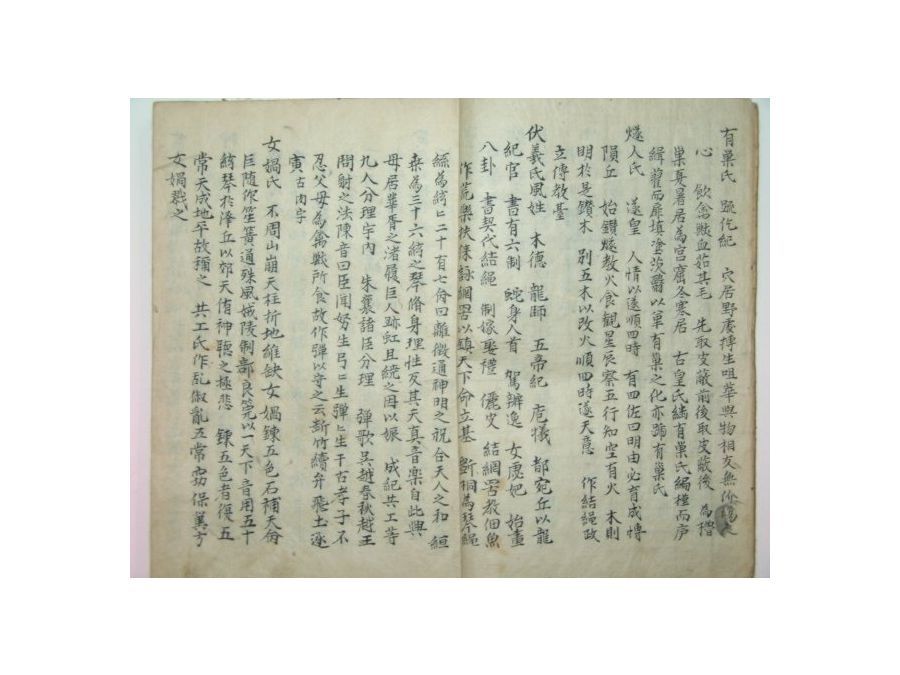 有巢氏 𨁏仡紀 穴居野處搏生咀華與物相友無
心 飮禽獸血茹其毛 先取皮蔽前後取皮蔽後 為橧
巢夏暑居為宮窟冬寒居 古皇氏繼有巢氏編槿而庐
緝藋而扉塡塗茨翳以革有巢之化亦號有巢氏
燧人氏 遂皇 人情以遂順四時 有四佐曰明由必育成博
隕丘 始鑽燧敎火食觀星辰察五行知空有火 木則
明於是鑽木 别五木以改火順四時遂天意 作結繩政
立傳敎臺
伏羲氏風姓 木德 龍師 五帝紀 庖犧 都宛丘以龍
紀官 書有六制 蛇身人首 駕辨逸 女虙妃 始畫
八卦 書契代結繩 制嫁娶禮 儷皮 結網罟敎佃魚
作荒樂扶徠詠網罟以鎭天下命立基 斲桐為琴繩
絲為絃ヒ二十有七份曰離徽通神明之祝合天人之和 絙
桑為三十六絃之琴脩身理性反其天真音樂自此興
母居華胥之渚履巨人跡虹且繞之因以娠 成紀共工等
九人分理宇內 朱襄諸臣分理 彈歌吳越春秋越王
問射之法陳音曰臣聞弩生弓ヒ生彈ヒ生于古孝子不
忍父母為禽獸所食故作彈以守之云斷竹續弁飛土逐
宍古肉字
女媧氏 不周山崩天柱折地維缺女媧鍊五色石補天命
臣随作笙簧通殊風娥陵制部良筦以一天下音用五十
絃琴於泽丘以郊天侑神聽之極悲 鍊五色者復五
常天成地平故稱之 共工氏作乱俶亂五常窃保冀方
女媧戮之